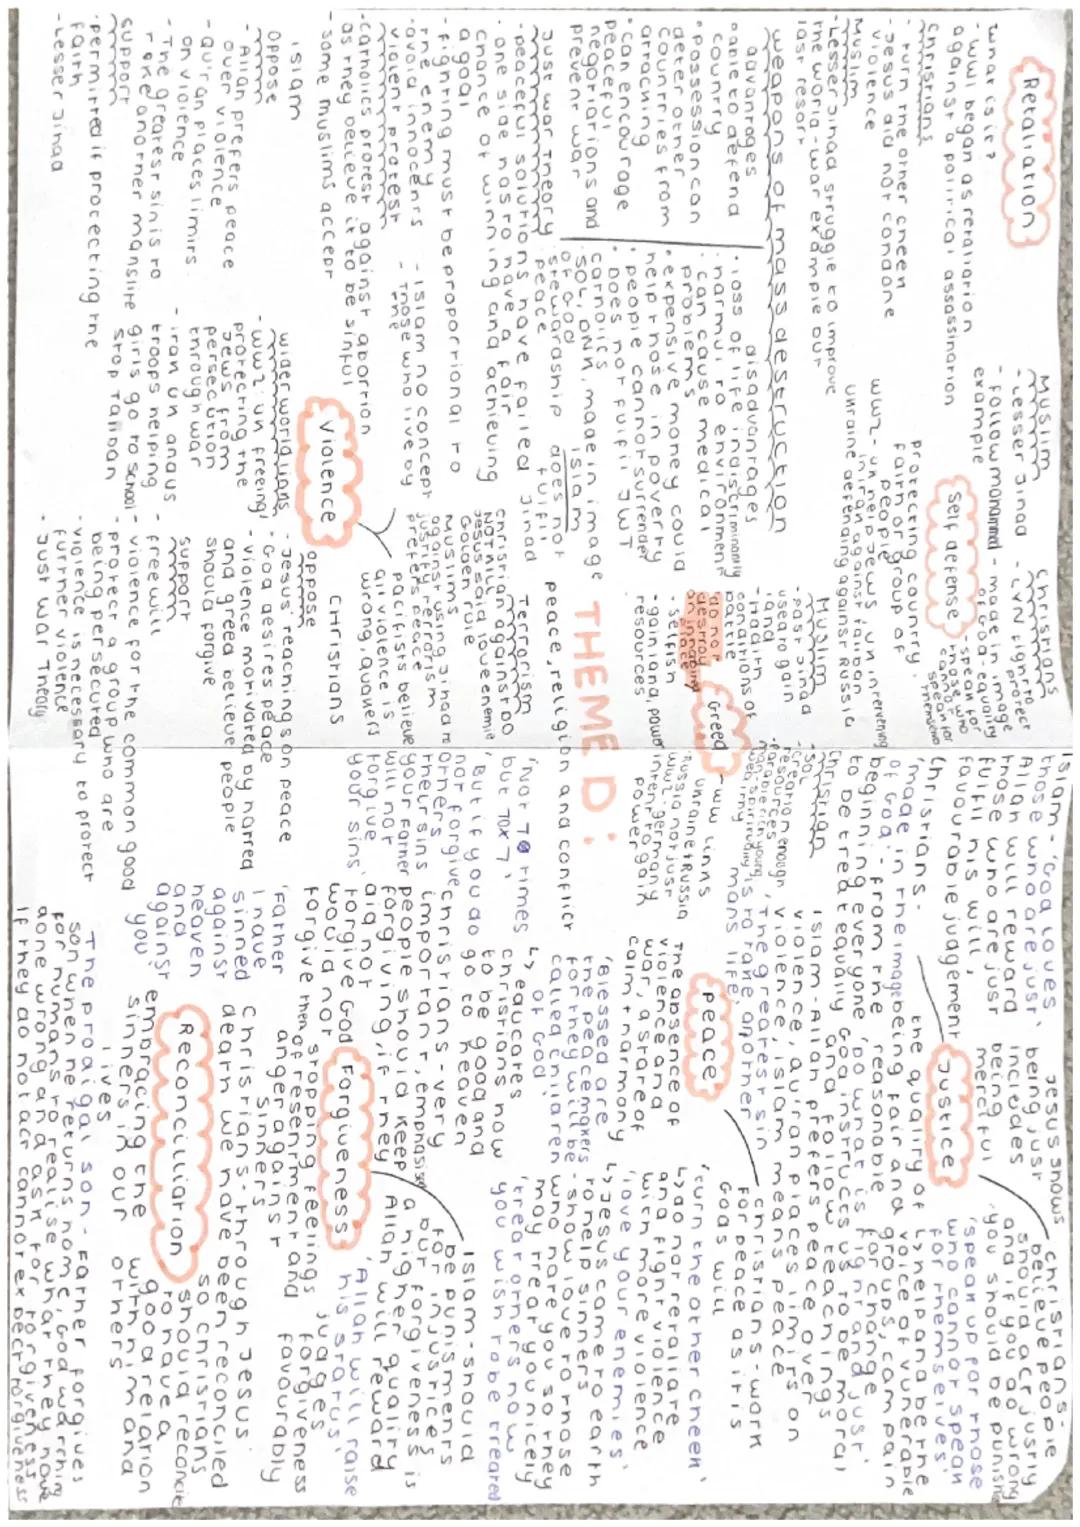 THEME D:
peace, religion and conflict
Retaliation
what is it?
- WW1 began as retaliation
against a political assassination
Christians
- turn the other cheek
- Jesus did not condone
violence
Muslim
- Lesser Jihad struggle to improve
the world - war example our
last resort
weapons of mass destruction
advantages
able to defend
country
• possession can
deter other
countries from
attacking
• can encourage
peaceful
negotiations and
prevent war
disadvantages
• loss of life indiscriminantly
• harmful to environment
• can cause medical
problems
• expensive money could
help those in poverty
• people cannot surrender
• does not fulfil JWT
Catholics
SOL, DNK, made in image
of God
stewardship
peace
Islam
does not
fulfil
Jihad
Just war theory
- peaceful solutions have failed
- one side has to have a fair
chance of winning and achieving
a goal
- fighting must be proportional to
the enemy
- avoid innocents
violent protest
- catholics protest against abortion
as they believe it to be sinful
- some muslims accept
- Islam no concept
- Those who live by
the
Islam
oppose
- Allah prefers peace
over violence
- Qu'ran places limits
on violence
- The greatest sin is to
take another mans life
support
- permitted if protecting the
faith
- Lesser Jihad
Muslim
- Lesser Jihad
- follow mohammed
example
Christians
- LVN fight to
protect
- made in image
of God - equality
- speak for
those who
cannot
speak for
themselves
self defense
protecting country,
faith or group of
people
WW2 - un help Jews
un intervening
in iran against taliban
Ukraine defending against Russia
Muslim
- past Jihad
used to gain
land
- Hadith
conditions of
battle
'do not
destroy
an inhabited
place'
- selfish
- gain land, power
resources
Greed
Christian
- SOL
- creation enough
resources
- parable rich young
man - spiritually
wealthy
WW links
Ukraine + Russia
Russia not just
WW2 - germany
intent to gain
power
Terrorism
Christian against DO
NOT Kill
Jesus said love enemie
Golden rule
Muslims
against using Jihad to
justify terrorism
prefers peace
Violence
wider world links
- WW2: un freeing/
protecting the
Jews from
persecution
through war
- iran un and us
troops helping
girls go to school
stop Taliban
pacifists believe
all violence is
wrong, quakers
Christians
oppose
- Jesus' teaching on peace
- God desires peace
- violence motivated by hatred
and greed believe people
should forgive
support
- free will
- violence for the common good
- protect a group who are
being persecuted
- violence is necessary to protect
further violence
- Just war Theory
Justice
Islam - 'God loves
those who are just'
Allah will reward
those who are just
fulfil his will,
favourable judgement
Jesus shows
being just
includes
being
merciful
Christians -
believe people
should act justly
and if you do wrong
you should be punished
'speak up for those
who cannot speak
for themselves'
↳ help and be the
voice of vunerable
groups, campaign
for change
the quality of
being fair and
reasonable
Christians -
'made in the image
of God' - from the
beginning everyone
to be treated equally
'Do what is right and just'
God instructs us to be moral
and follow teachings
Islam - Allah prefers peace over
violence, qu'ran places limits on
violence, islam means peace
'The greatest sin
is to take another
mans life'
peace
The absence of
violence and
war, a state of
calm + harmony
Christians - work
for peace as it is
Gods will
'turn the other cheek'
↳ do not retaliate
and fight violence
with more violence
'love your enemies'
↳ Jesus came to earth
to help sinners
- show love to those
who hate you so they
may treat you nicely
'treat others how
you wish to be treated'
'Blessed are
the peacemakers
for they will be
called children
of God'
↳ educates
christians how
to be good and
go to heaven
'Not 7 times
but 70x7'
'But if you do
not forgive
others
their sins
your father
will not
forgive
your sins'
Christians - very
important, emphasise
people should keep
forgiving, if they
did not
forgive God
would not
forgive them
Forgiveness
stopping feelings
of resentment and
anger against
sinners
Islam - should
be punishments
for injustices
but forgiveness is
a higher quality
Allah will reward
'Allah will raise
his status'
Judges
forgiveness
favourably
'Father
I have
sinned
against
heaven
and
against
you'
Christians - through Jesus'
death we have been reconciled
so christians
should reconcile
to have a
good relation
with him and
others
Reconcilliation
embracing the
sinners in our
lives
The prodigal son - Father forgives
son when he returns home, God waiting
for humans to realise what they have
done wrong and ask for forgiveness
if they do not act cannot expect forgiveness